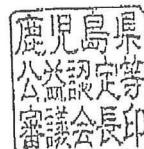 鹿児島県
公益認定等
審議会長印